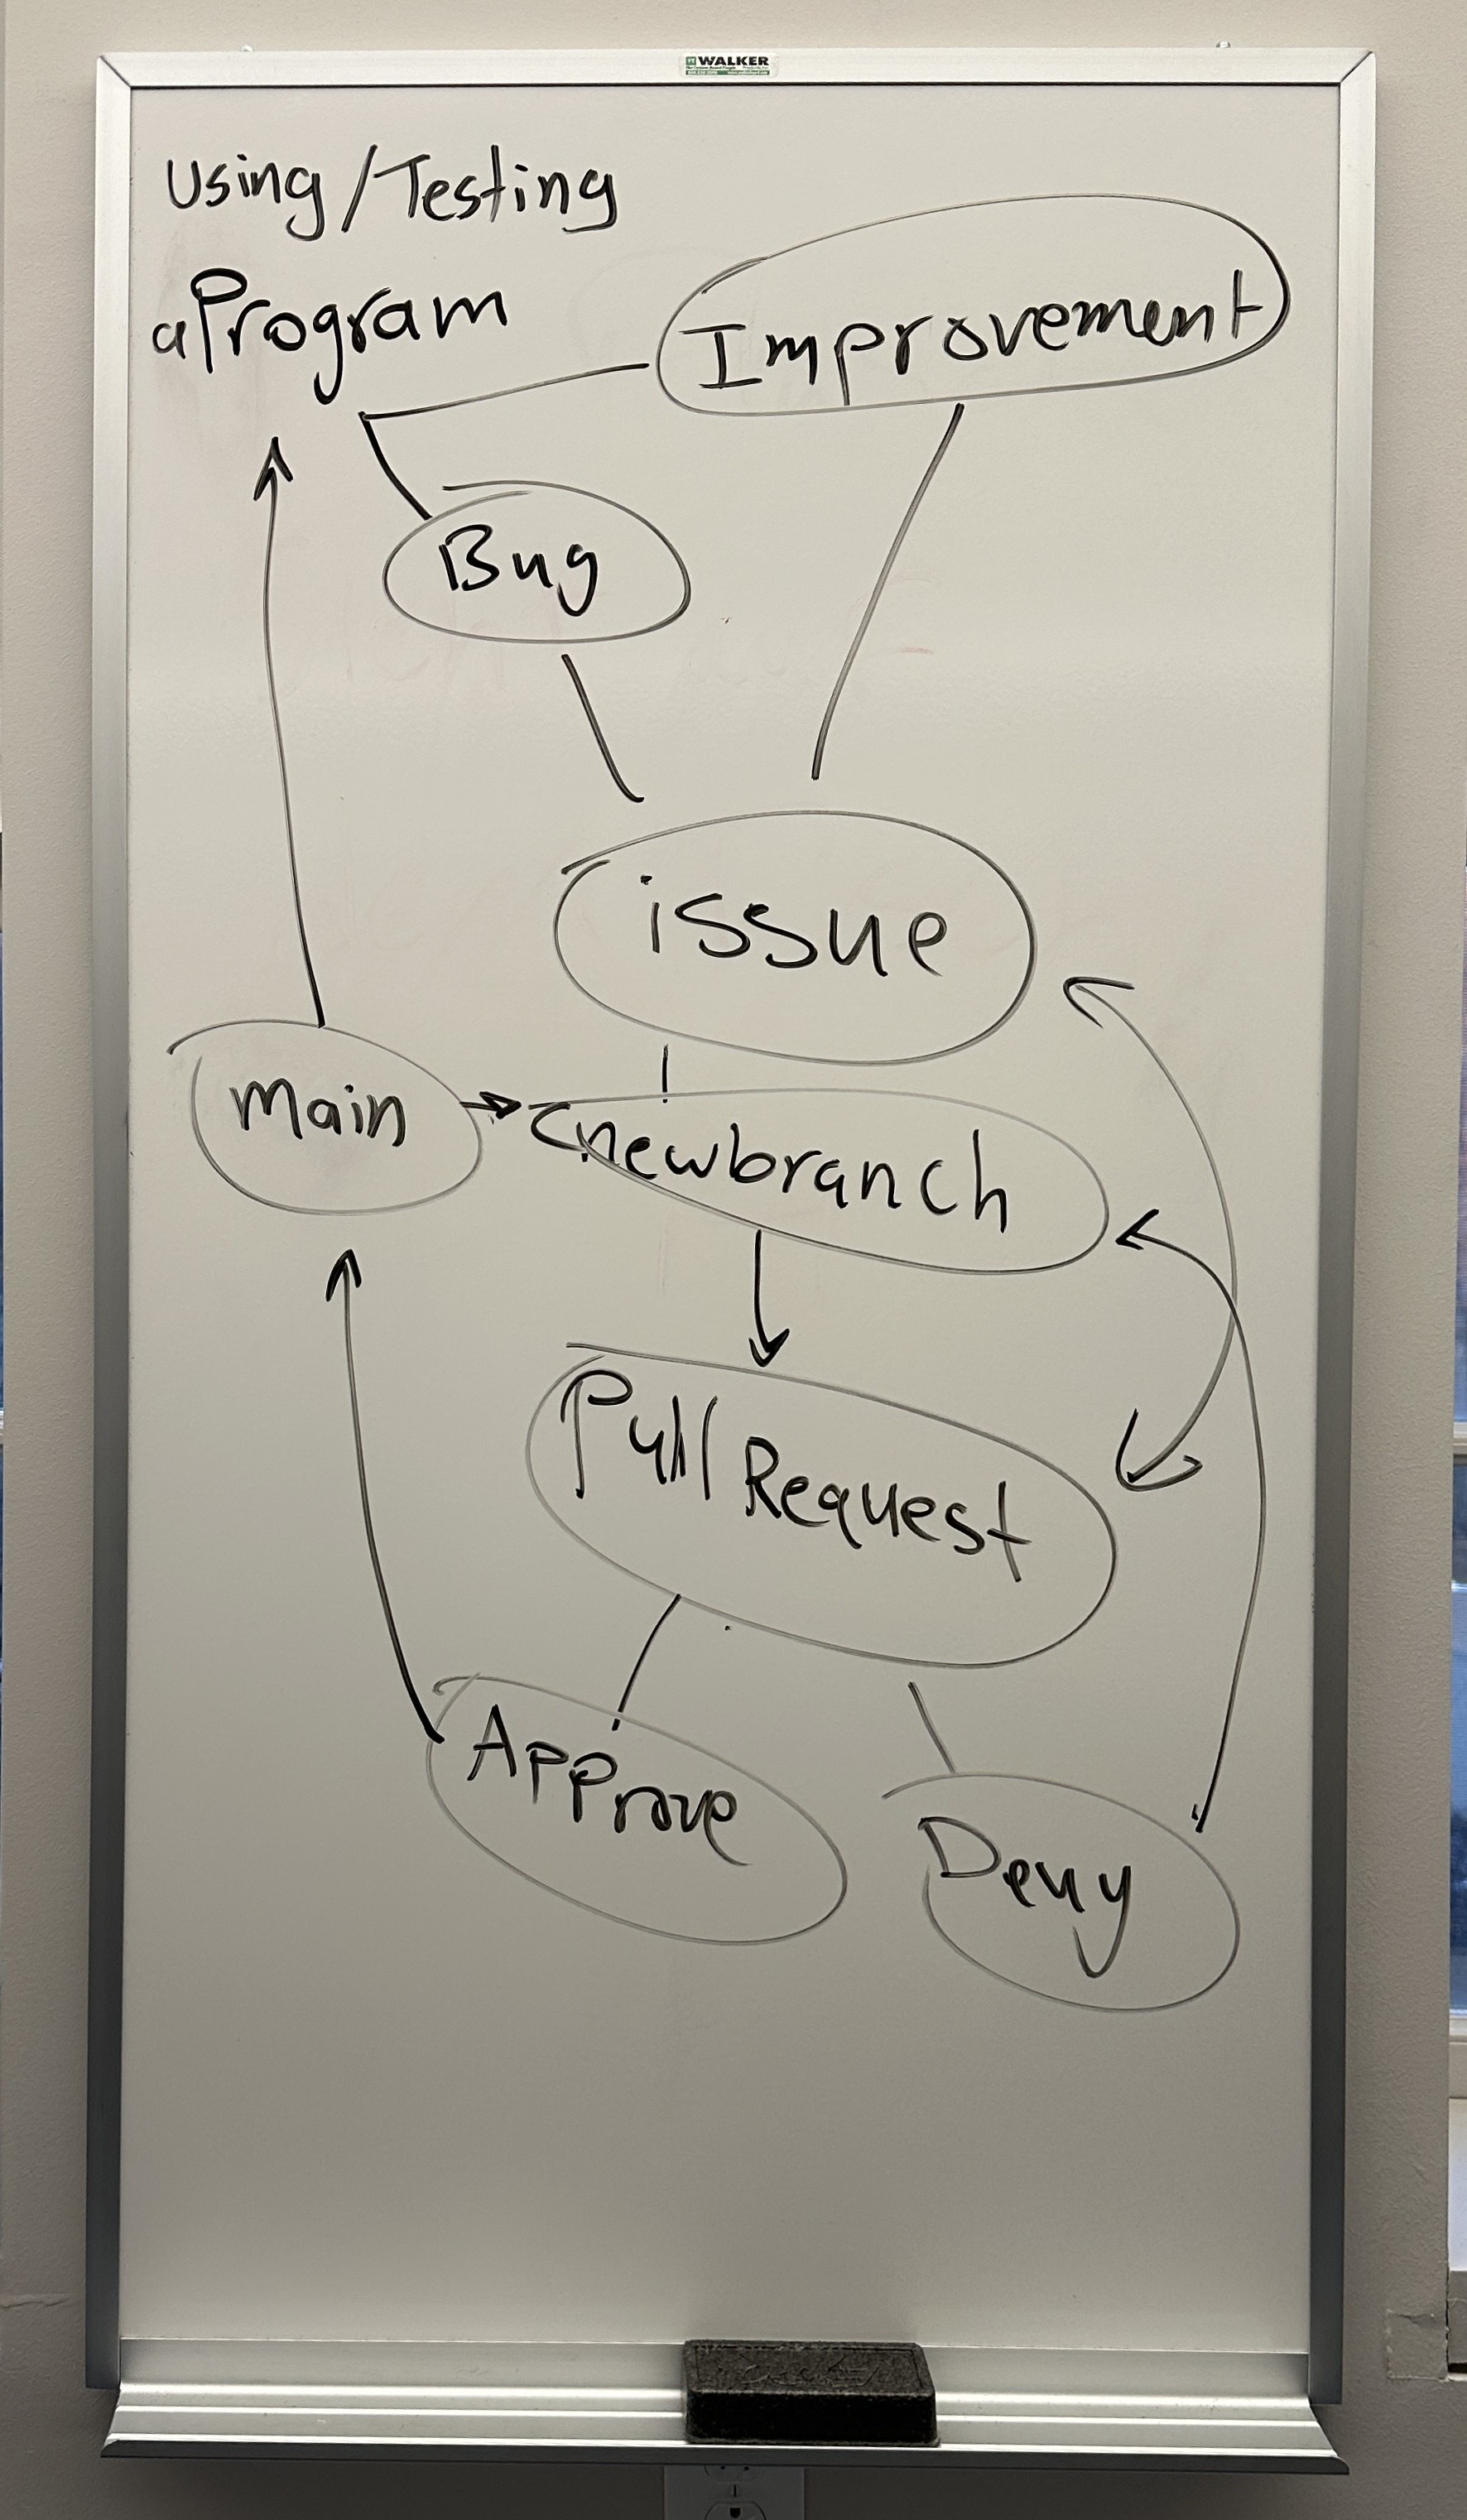 WALKER
Using/Testing
a Program
Improvement
Bug
issue
main
newbranch
Pull Request
Approve
Deny